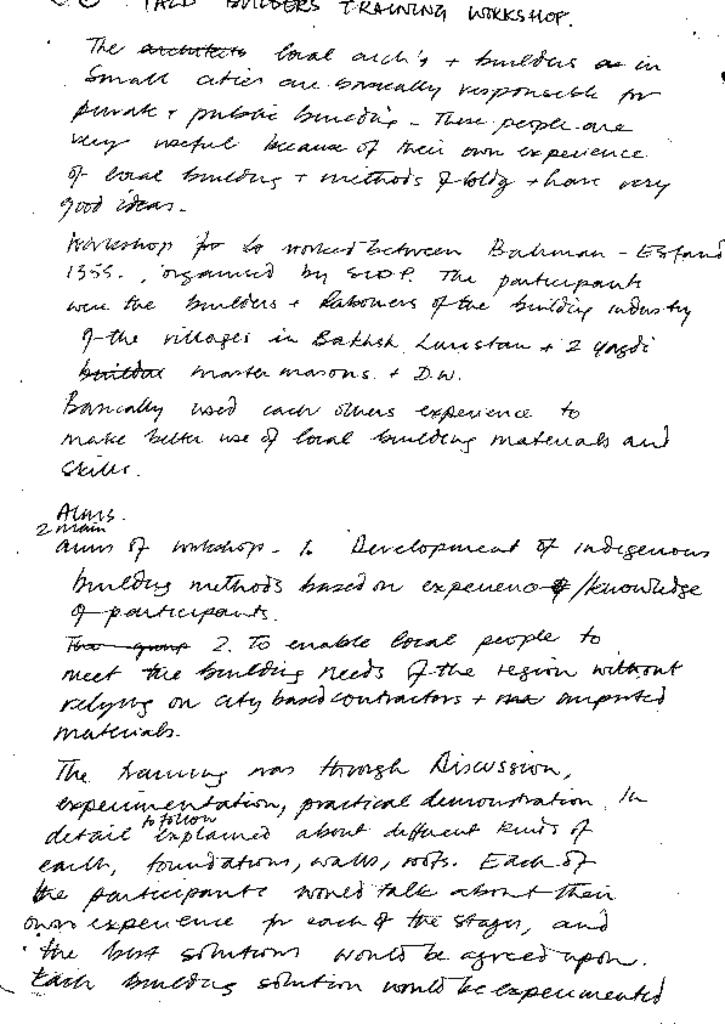 BUILDERS TRAINING WORKSHOP.
The architects local arch's + builders as in
Small cities are basically responsible for
private + public building - These people are
very useful because of their own experience
of local building + methods of bldg + have very
good ideas.
Workshop for to worked between Bahman - Esfand
1355. , organised by SIOP. The participants
were the builders + Labourers of the building industry
of the villages in Bakhsh Luristan + 2 yazdi
master masons. + D.W.
Basically used each others experience to
make better use of local building materials and
skills.
AIMS.
2 main
aims of workshop - 1. Development of indigenous
building methods based on experience /knowledge
of participants.
2. To enable local people to
meet the building needs of the region without
relying on city based contractors + imported
materials.
The training was through Discussion,
experimentation, practical demonstration. In
to follow
detail explained about different kinds of
earth, foundations, walls, roofs. Each of
the participants would talk about their
own experience for each of the stages, and
the best solutions would be agreed upon.
Each building solution would be experimented